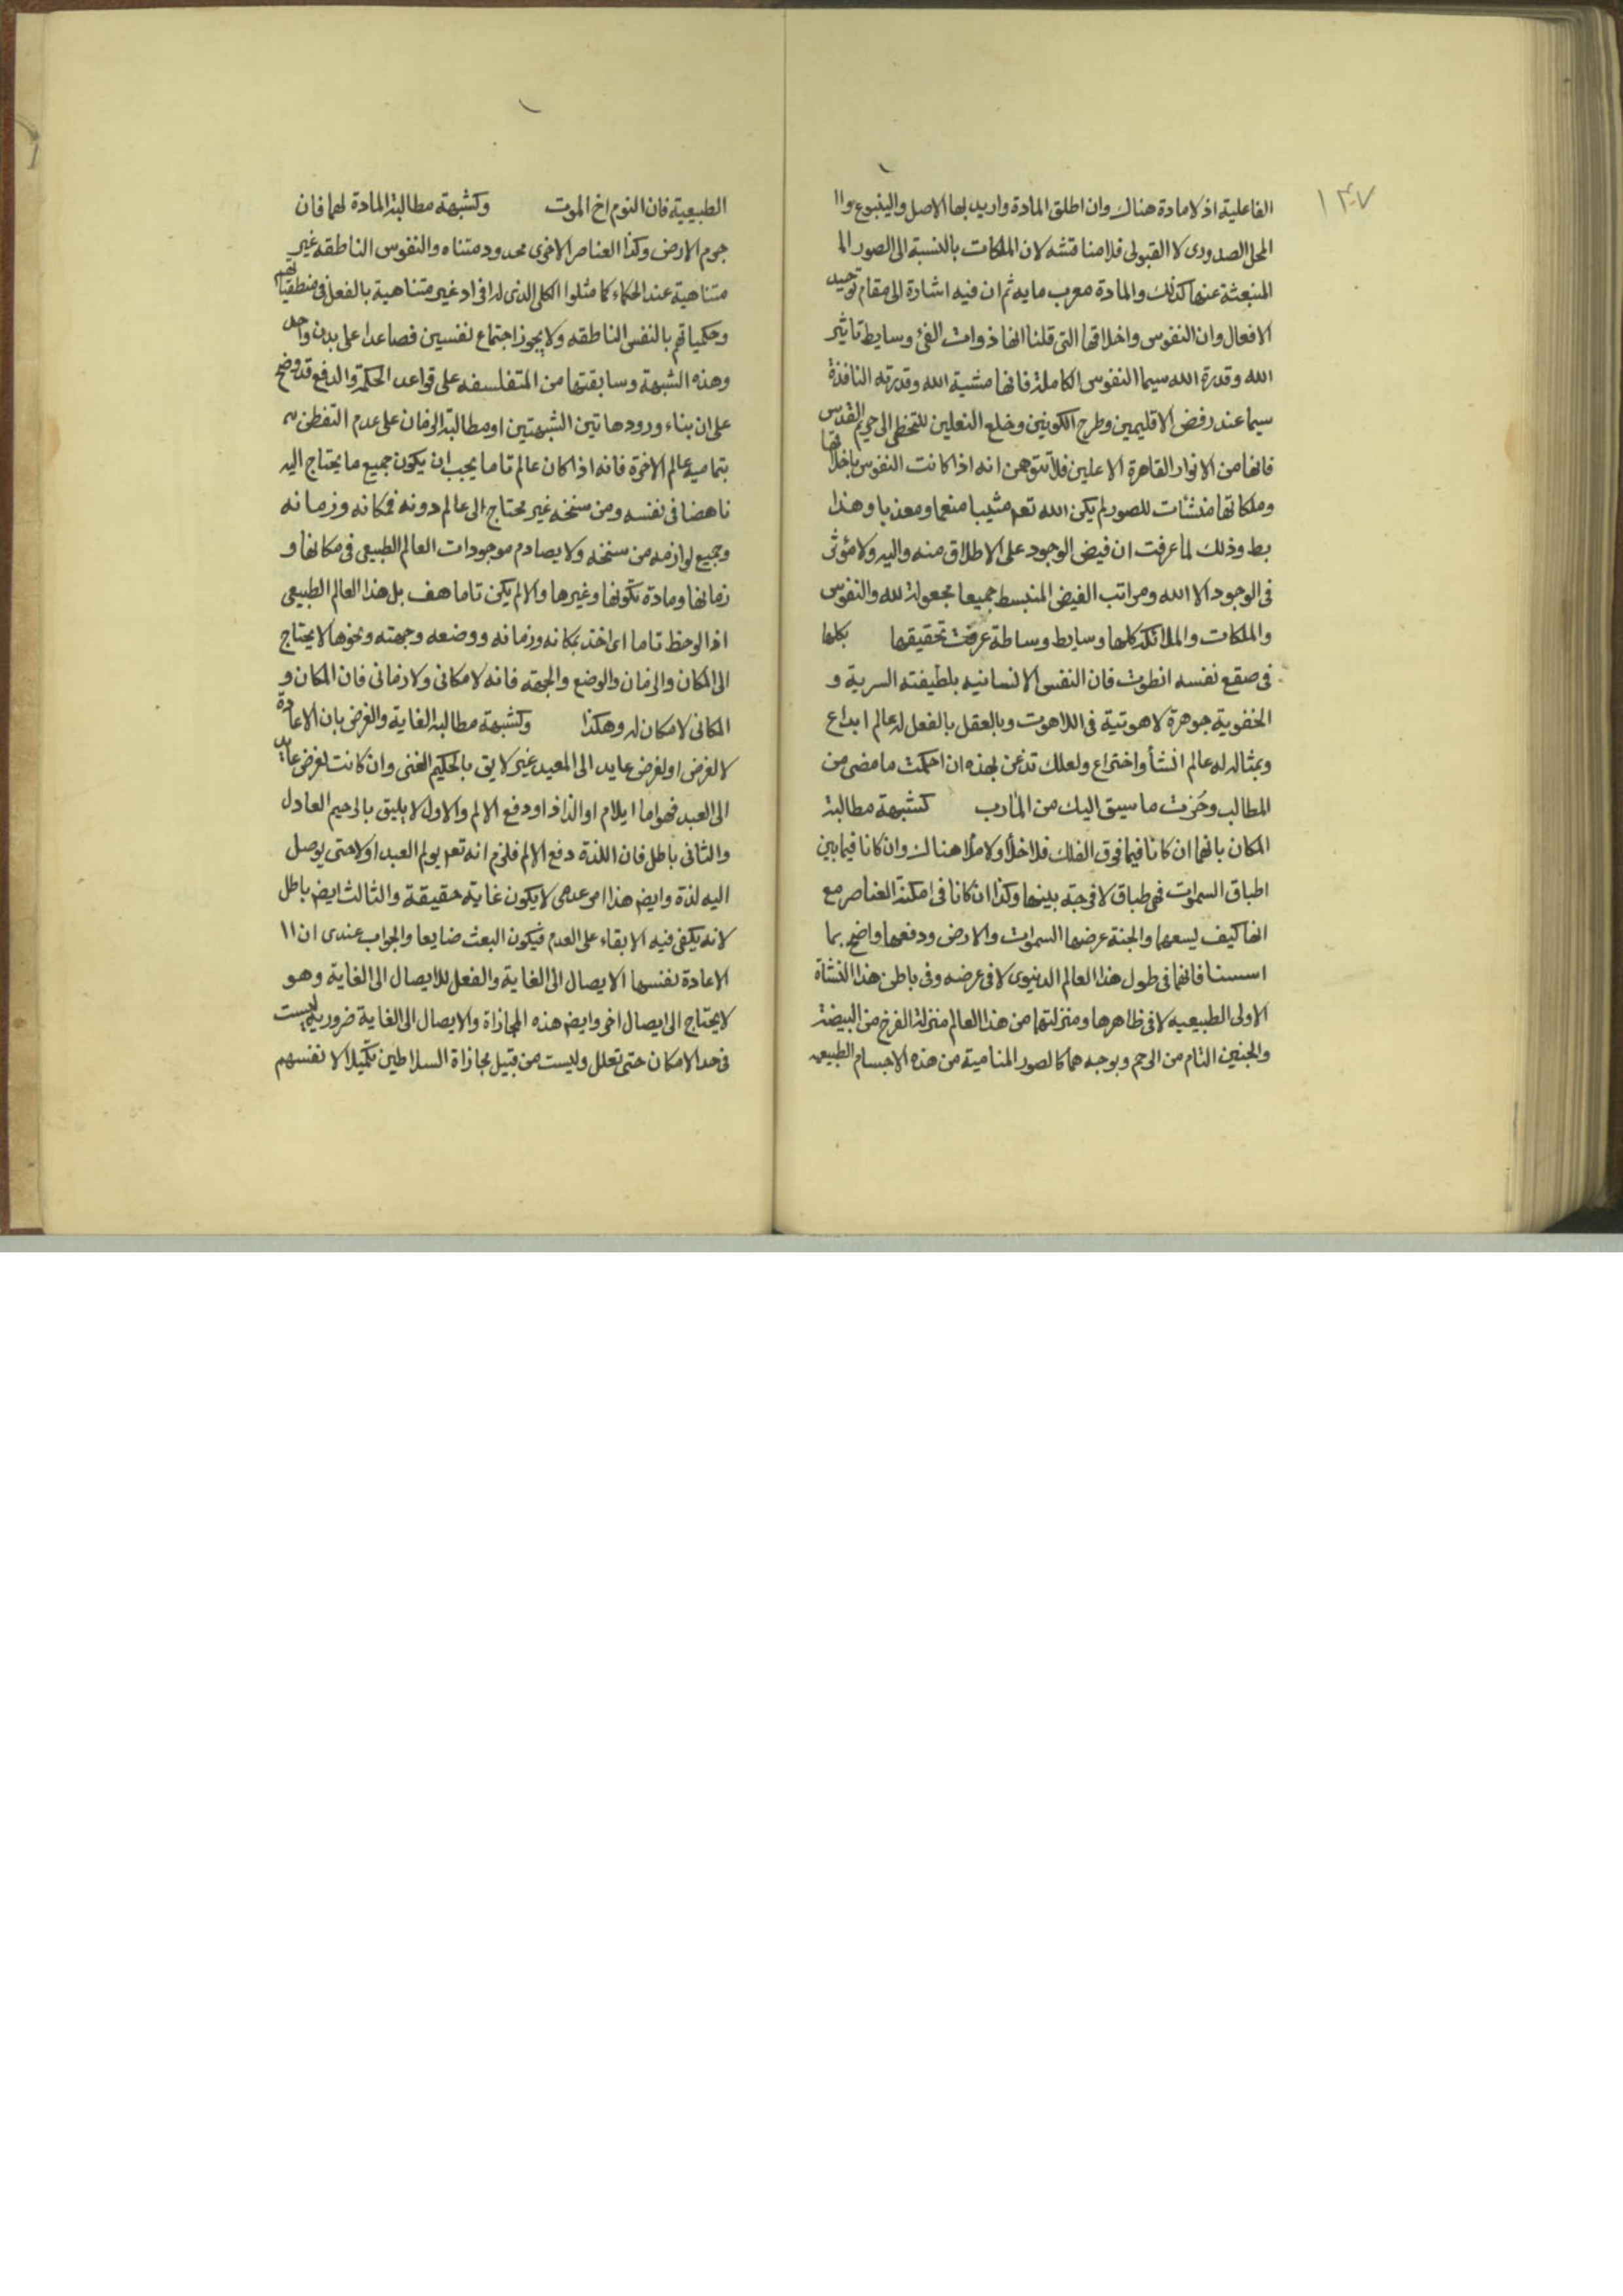 ١٣٠٧
الفاعلية اذ لا مادة هناك وان اطلق المادة واريد بها الاصل والينبوع واا
المحل الصدورى لا القبولى فلا مناقشه لان الملكات بالنسبة الى الصور الم
المنبعثة عنها كذلك والمادة معرب مايه ثم ان فيه اشارة الى مقام توحيد
الافعال وان النفوس واخلاقها التى قلنا انها ذوات الفئ وسايط تاثير
الله وقدرة الله سيما النفوس الكاملة فانها مشية الله وقدرته النافذة
سيما عند رفض الاقليمين وطرح الكونين وخلع النعلين للتخطى الى حريم القدس
فانها من الانوار القاهرة الاعلين فلا تتوهمن انه اذا كانت النفوس باخلاقها
وملكاتها منشئات للصور لم يكن الله تعه مثيبا منعما ومعذبا وهذا
بط وذلك لما عرفت ان فيض الوجود على الاطلاق منه واليه ولا مؤثر
فى الوجود الا الله ومراتب الفيض المنبسط جميعا مجعولة لله والنفوس
والملكات والملائكة كلها وسايط وساطة عرفت تحقيقها بكلها
فى صقع نفسه انطوت فان النفس الانسانيه بلطيفته السرية و
الخفوية جوهرة لاهوتية فى اللاهوت وبالعقل بالفعل له عالم ابداع
وبمثاله له عالم انشأ واختراع ولعلك تذعن بهذه ان احكمت ما مضى من
المطالب وحُزت ما سيق اليك من المأرب كشبهة مطالبة
المكان بانهما ان كانا فيما فوق الفلك فلا خلأ ولا ملأ هناك وان كانا فيما بين
اطباق السموات فهى طباق لا فرجة بينها وكذا ان كانا فى امكنة العناصر مع
انها كيف يسعها والجنة عرضها السموات والارض ودفعها واضح بما
اسسنا فانهما فى طول هذا العالم الدنيوى لا فى عرضه وفى باطن هذا النشاة
الاولى الطبيعيه لا فى ظاهرها ومنزلتهما من هذا العالم منزلة الفرخ من البيضة
والجنين التام من الرحم وبوجه هما كالصور المنامية من هذه الاجسام الطبيعيه
الطبيعية فان النوم اخ الموت وكشبهة مطالبة المادة لهما فان
جرم الارض وكذا العناصر الاخرى محدود متناه والنفوس الناطقه غير
متناهية عند الحكماء كما مثلوا الكلى الذى له افراد غير متناهية بالفعل فى منطقياتهم
وحكمياتهم بالنفس الناطقه ولا يجوز اجتماع نفسين فصاعدا على بدن واحد
وهذه الشبهة وسابقتها من المتفلسفه على قواعد الحكمة والدافع قد وضح
على ان بناء ورود هاتين الشبهتين او مطالبة الزمان على عدم التفطن
بتماميه عالم الاخرة فانه اذا كان عالم تاما يجب ان يكون جميع ما يحتاج اليه
ناهضا فى نفسه ومن سنخه غير محتاج الى عالم دونه فمكانه وزمانه
وجميع لوازمه من سنخه ولا يصادم موجودات العالم الطبيعى فى مكانها و
زمانها ومادة تكونها وغيرها والا لم يكن تاما هف بل هذا العالم الطبيعى
اذا لوحظ تاما اى اخذ بمكانه وزمانه ووضعه وجهته ونحوها لا يحتاج
الى المكان والزمان والوضع والجهة فانه لا مكانى ولا زمانى فان المكان و
المكانى لا مكان له وهكذا وكشبهة مطالبة الغاية والغرض بان الاعادة
لا لغرض او لغرض عايد الى المعيد غير لايق بالحكيم الغنى وان كانت لغرض عايد
الى العبد فهو اما ايلام او الذاذ او دفع الالم والاول لا يليق بالرحيم العادل
والثانى باطل فان اللذة دفع الالم فلزم انه تعه يولم العبد اولا حتى يوصل
اليه لذة وايض هذا امر عدمى لا يكون غاية حقيقة والثالث ايض باطل
لانه يكفى فيه الابقاء على العدم فيكون البعث ضايعا والجواب عندى ان اا
الاعادة نفسها الايصال الى الغاية والفعل للايصال الى الغاية وهو
لا يحتاج الى ايصال اخر وايض هذه المجازاة والايصال الى الغاية ضرورية ليست
فى حد الامكان حتى تعلل وليست من قبيل مجازاة السلاطين تكميلا لا نفسهم